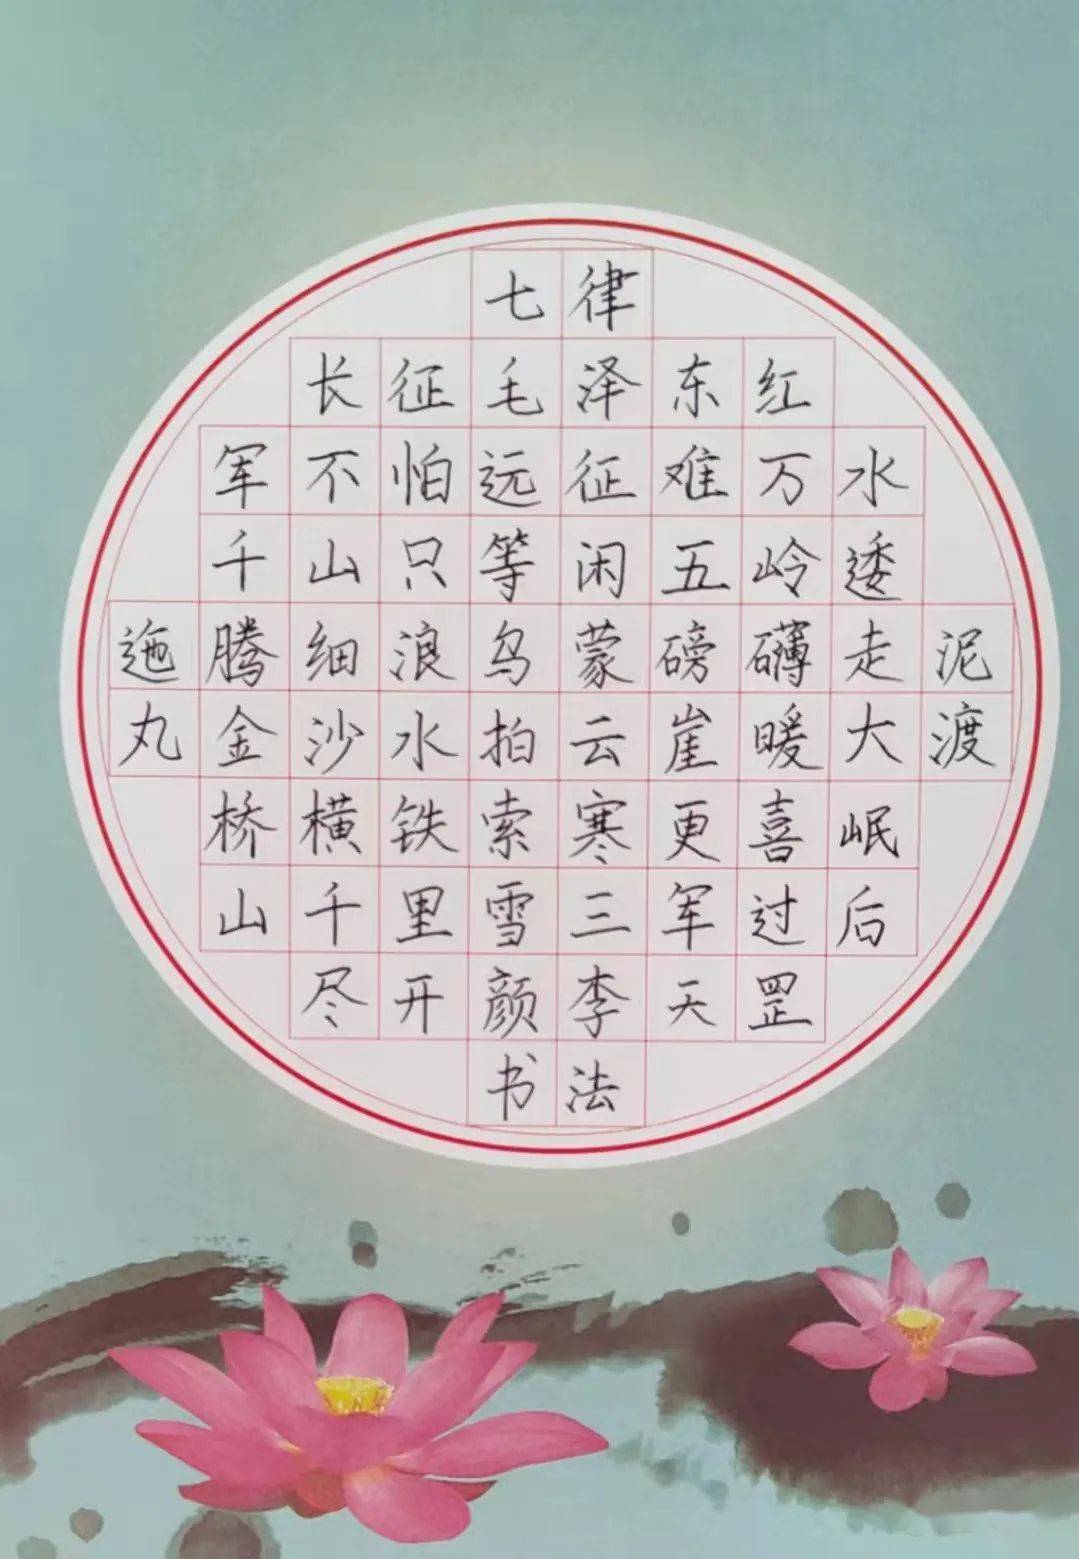 七律
长征毛泽东红
军不怕远征难万水
千山只等闲五岭逶
迤腾细浪乌蒙磅礴走泥
丸金沙水拍云崖暖大渡
桥横铁索寒更喜岷
山千里雪三军过后
尽开颜李天罡
书法